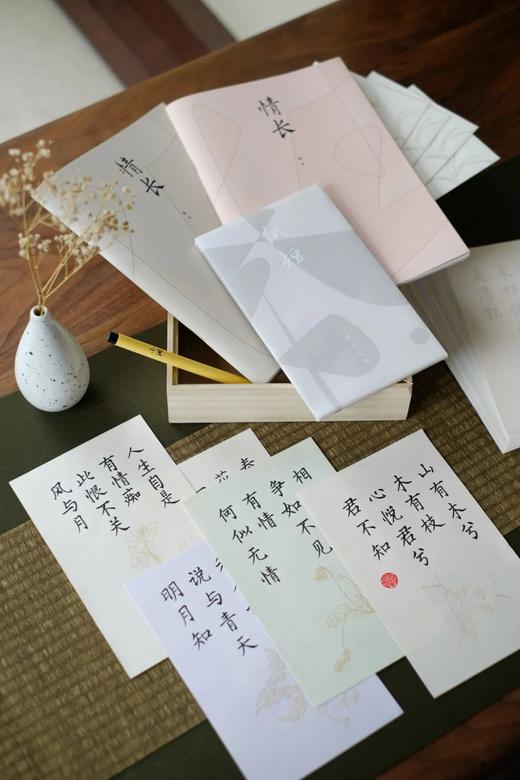 情
长
情
长
纸
短
人生自是
有情痴
此恨不关
风与月
相
争如不见
有情
何似无情
说与青天
明月知
山有木兮
木有枝
心悦君兮
君不知